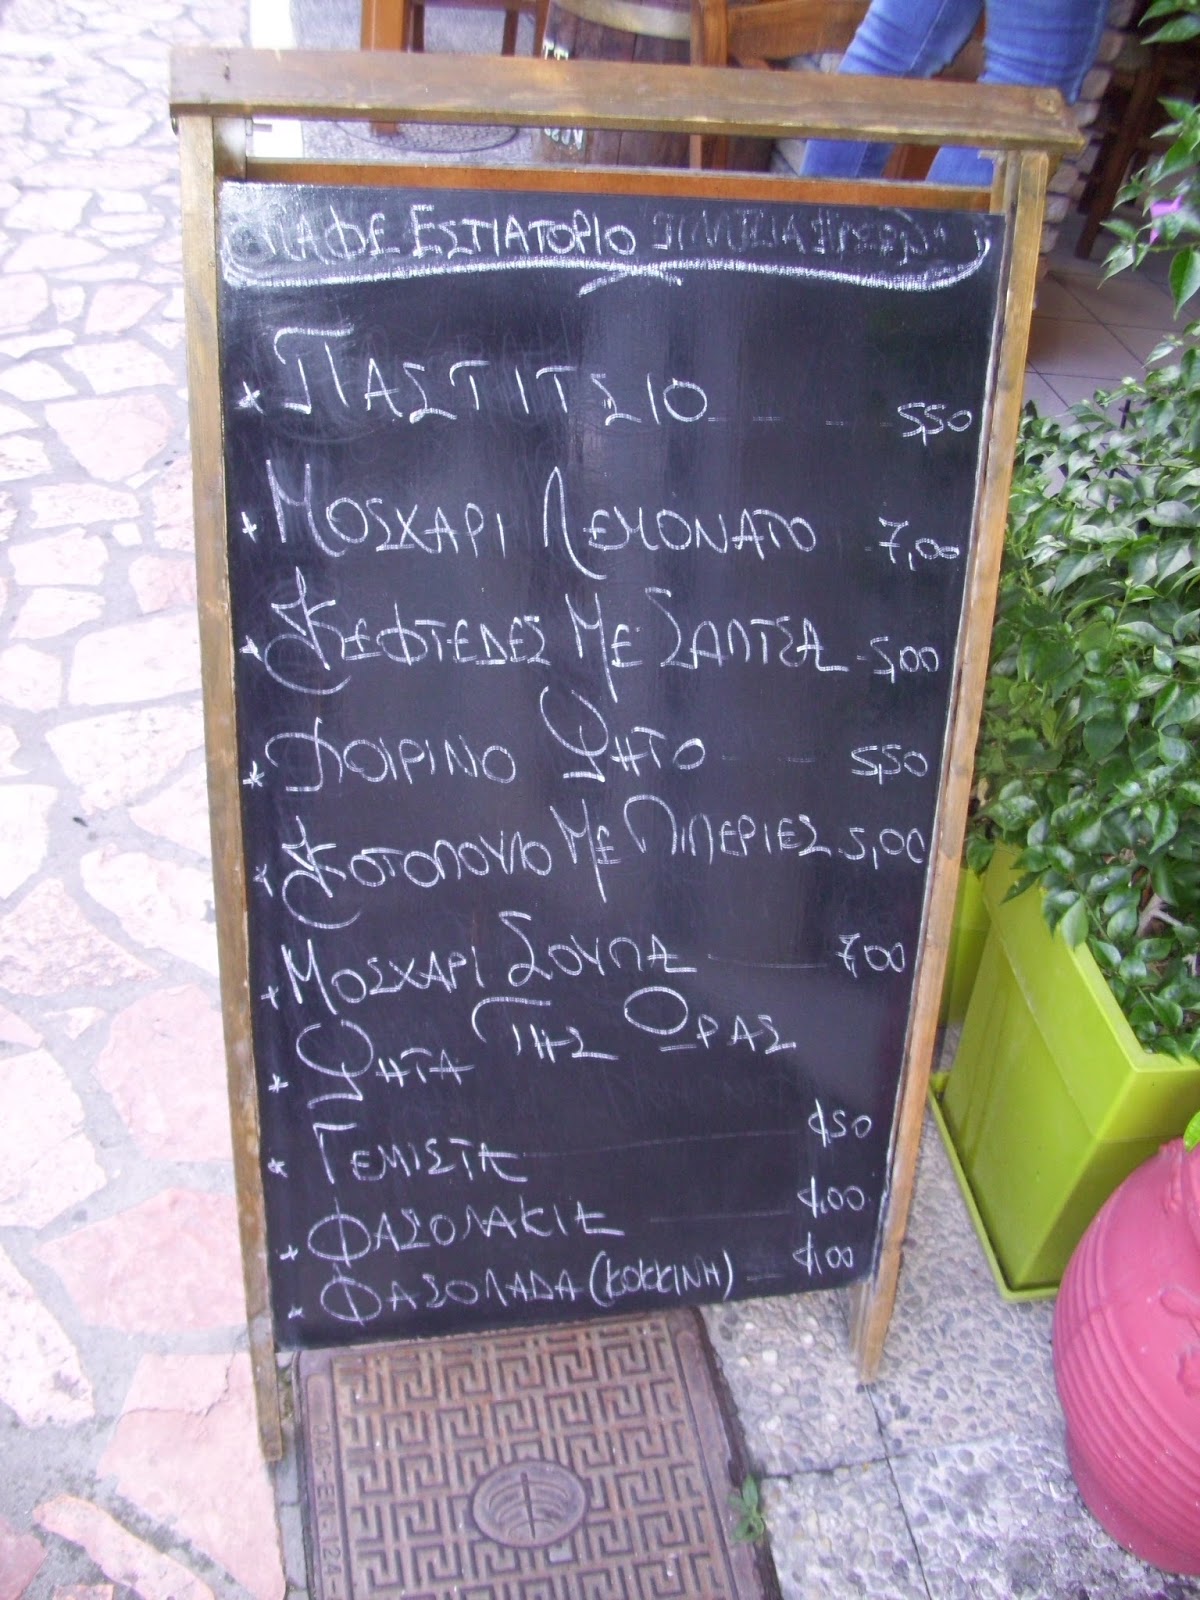 ΚΑΦΕ ΕΣΤΙΑΤΟΡΙΟ
* ΠΑΣΤΙΤΣΙΟ 5,50
* ΜΟΣΧΑΡΙ ΛΕΜΟΝΑΤΟ 7,00
* ΚΕΦΤΕΔΕΣ ΜΕ ΣΑΛΤΣΑ 5,00
* ΧΟΙΡΙΝΟ ΨΗΤΟ 5,50
* ΚΟΤΟΠΟΥΛΟ ΜΕ ΠΙΠΕΡΙΕΣ 5,00
* ΜΟΣΧΑΡΙ ΣΟΥΠΑ 7,00
* ΨΗΤΑ ΤΗΣ ΩΡΑΣ
* ΓΕΜΙΣΤΑ 4,50
* ΦΑΣΟΛΑΚΙΑ 4,00
* ΦΑΣΟΛΑΔΑ (ΚΟΚΚΙΝΗ) 4,00